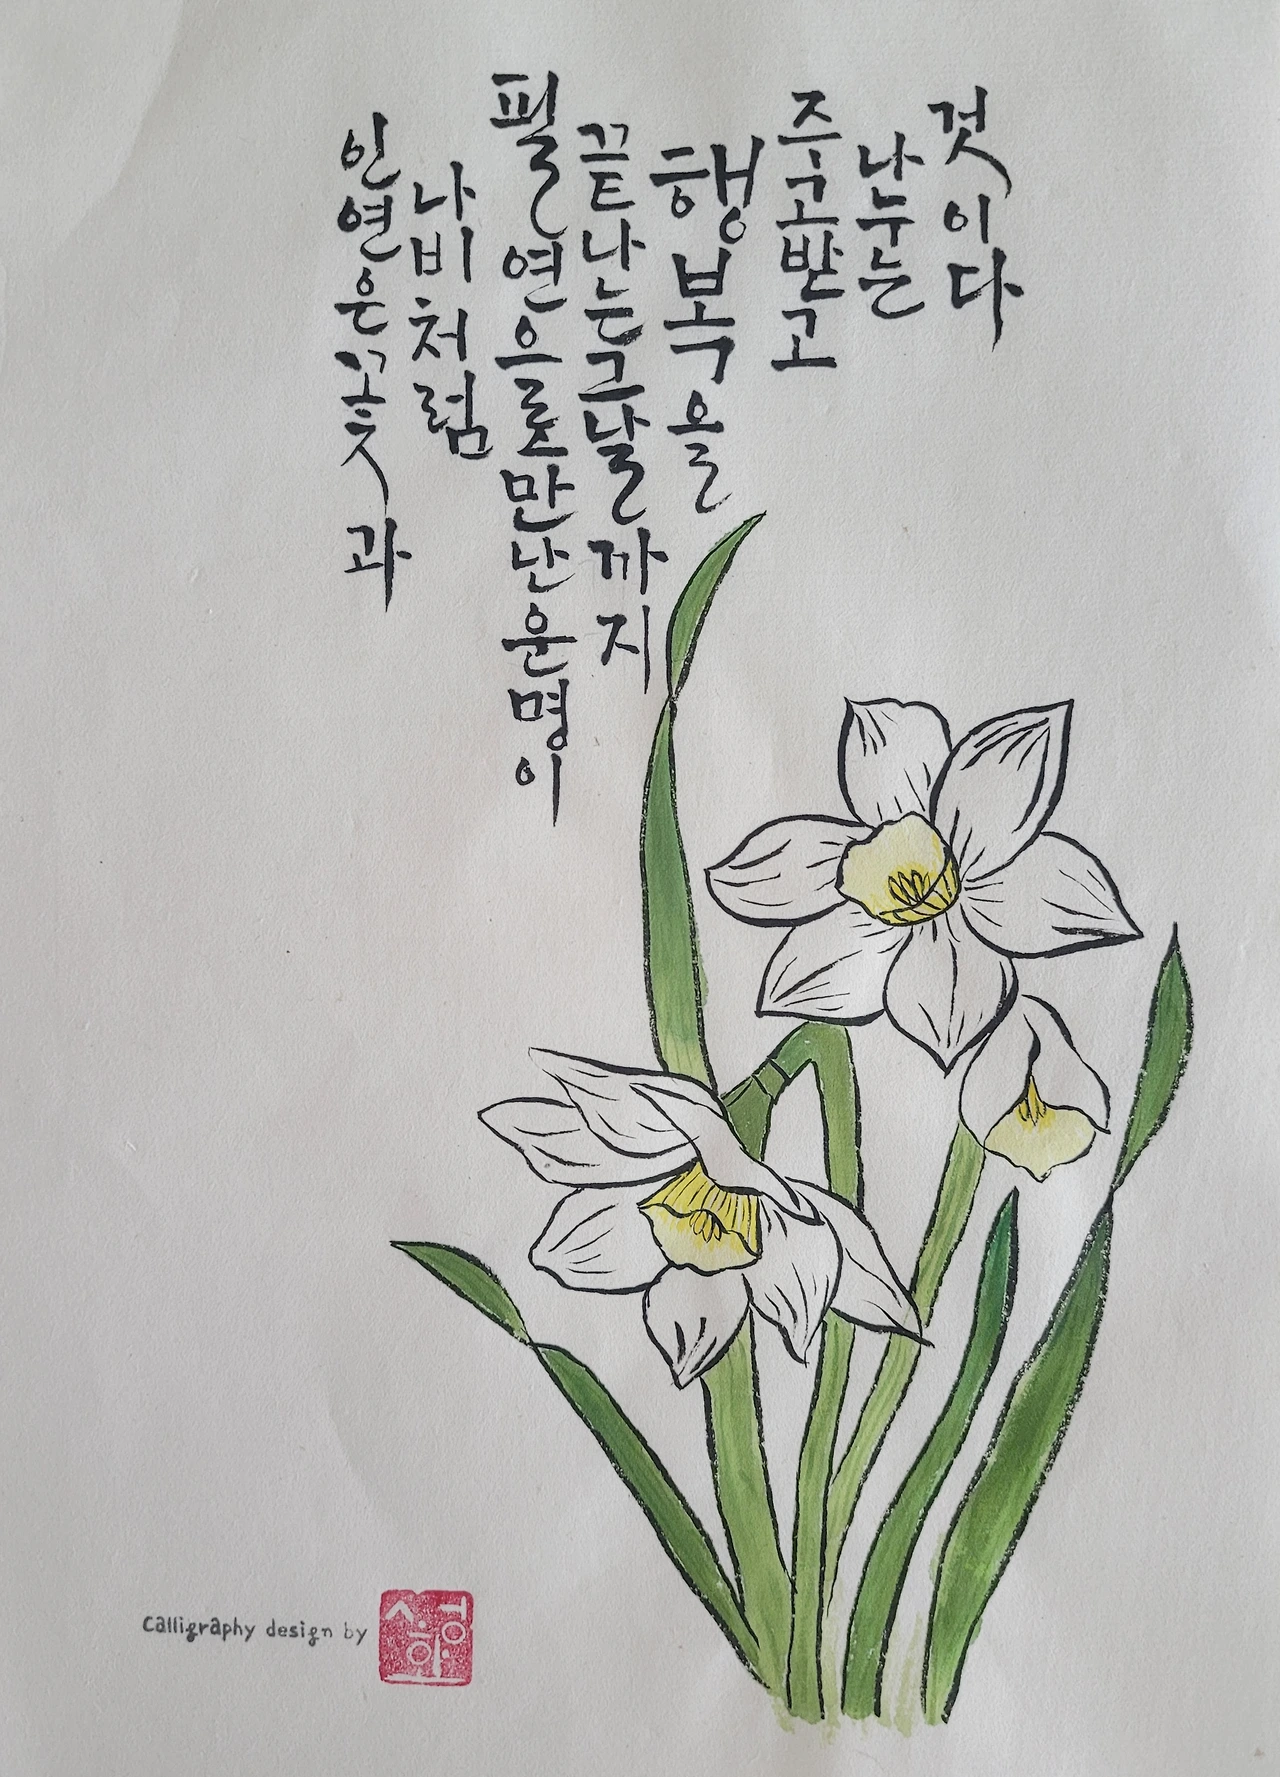 인연은꽃과
나비처럼
필연으로만난운명이
끝나는그날까지
행복을
주고받고
나누는
것이다
Calligraphy design by